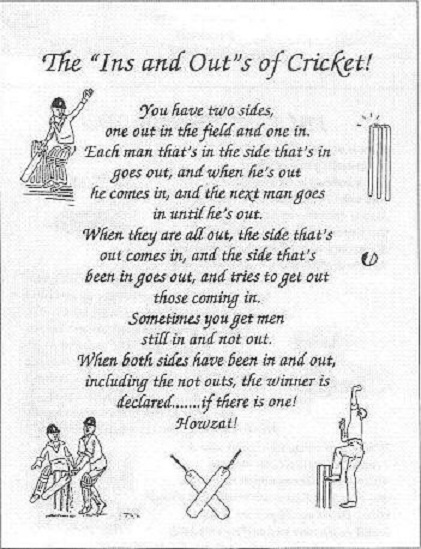 The "Ins and Out"s of Cricket!
You have two sides,
one out in the field and one in.
Each man that's in the side that's in
goes out, and when he's out
he comes in, and the next man goes
in until he's out.
When they are all out, the side that's
out comes in, and the side that's
been in goes out, and tries to get out
those coming in.
Sometimes you get men
still in and not out.
When both sides have been in and out,
including the not outs, the winner is
declared.......if there is one!
Howzat!